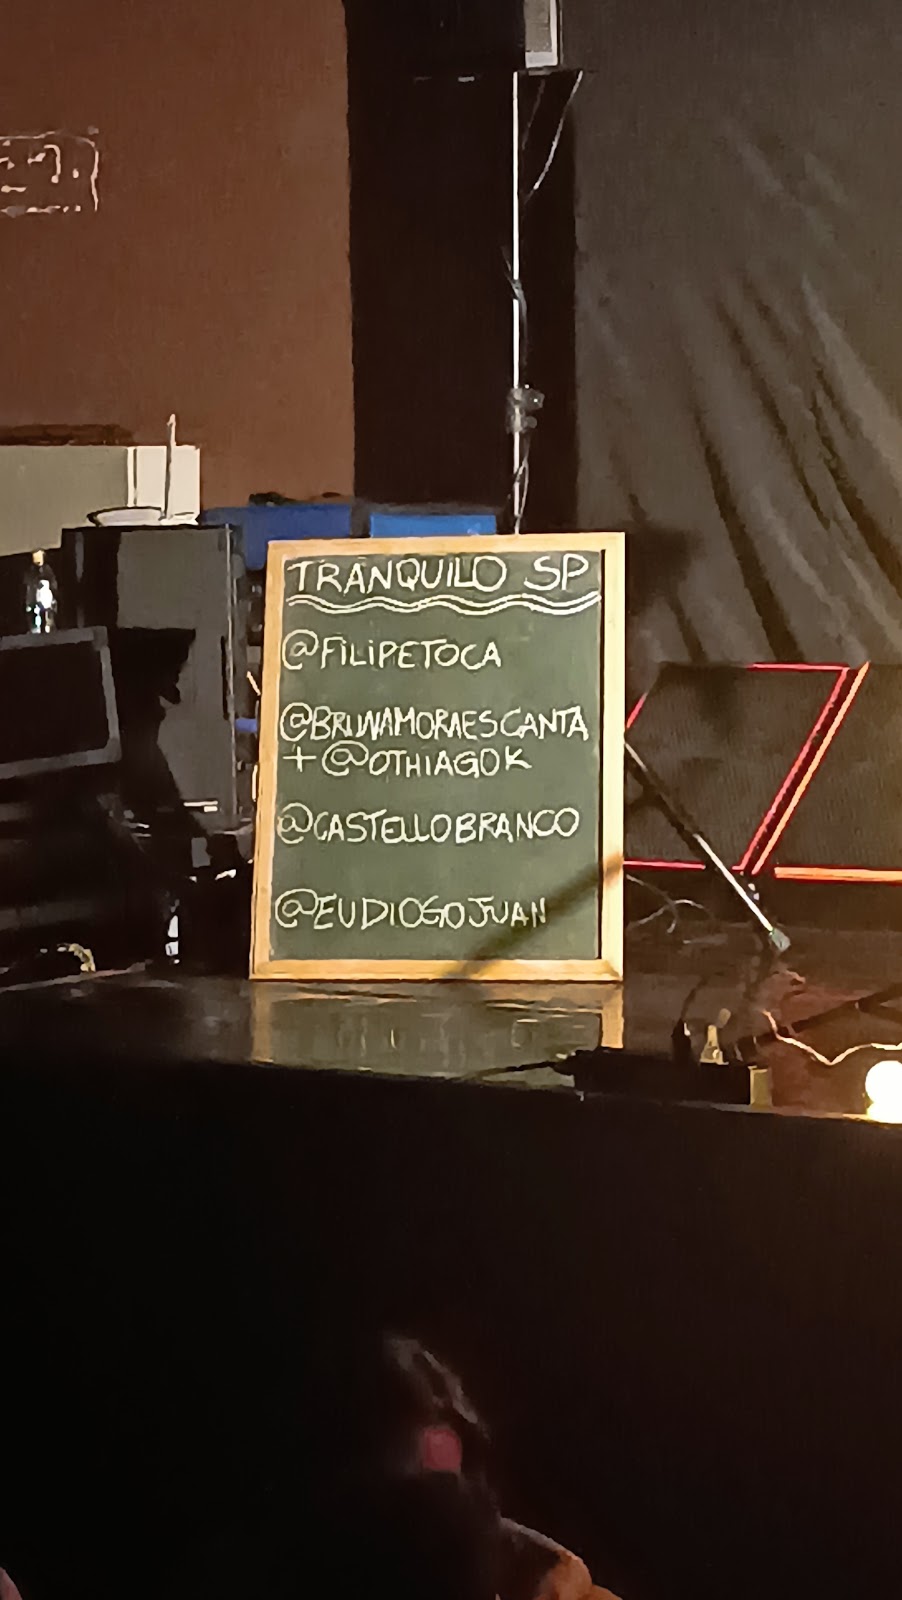 TRANQUILO SP
@FILIPETOCA
@BRUNAMORAESCANTA
+ @OTHIAGOK
@CASTELLOBRANCO
@EUDIOGOJUAN